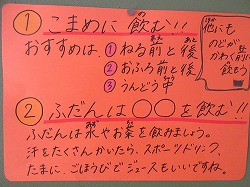 ① こまめに飲む!!
おすすめは ①ねる前と後
②おふろ前と後
③うんどう中
他にも
のどが
かわく前に
飲もう
② ふだんは〇〇を飲む!!
ふだんは水やお茶を飲みましょう。
汗をたくさんかいたら、スポーツドリンク、
たまに、ごほうびでジュースもいいですね。